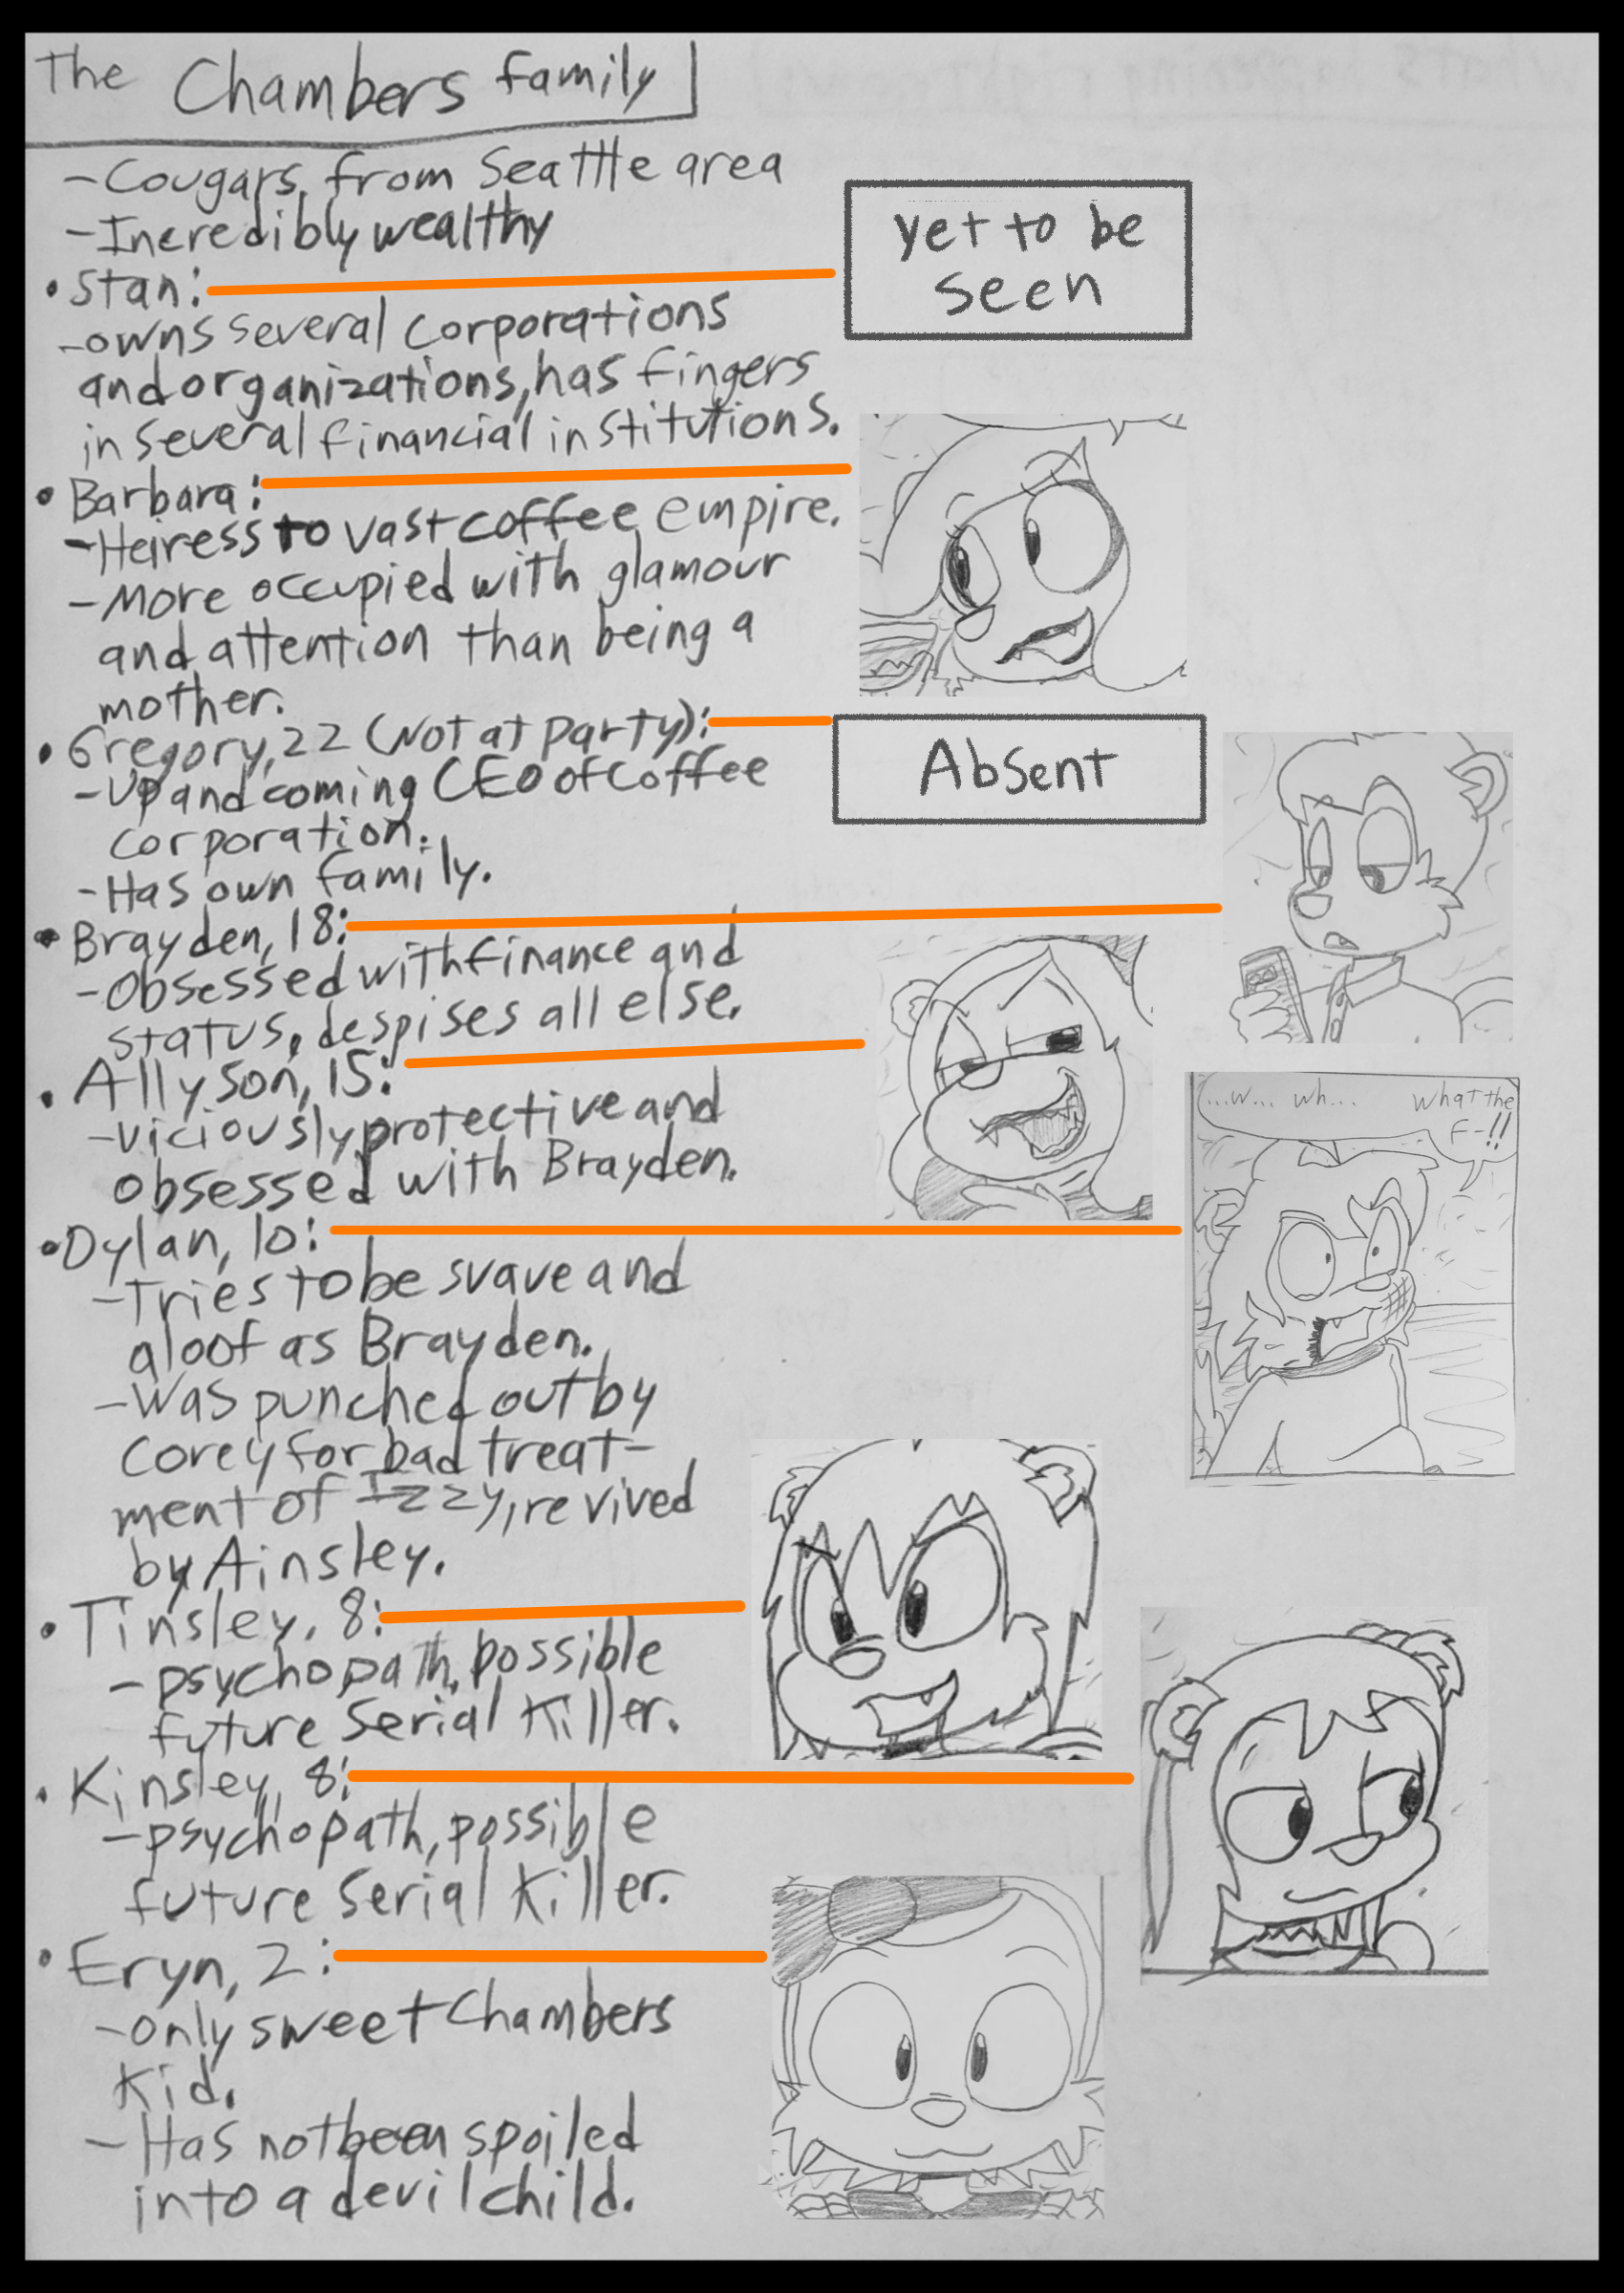 The Chambers family
-Cougars, from Seattle area
-Incredibly wealthy
yet to be
seen
• Stan:
-owns several corporations
and organizations, has fingers
in several financial institutions.
• Barbara:
-Heiress to vast coffee empire.
-More occupied with glamour
and attention than being a
mother.
• Gregory, 22 (Not at party):
Absent
-Up and coming CEO of coffee
corporation.
-Has own family.
• Brayden, 18:
-Obsessed with finance and
status, despises all else.
• Allyson, 15:
-viciously protective and
obsessed with Brayden.
...w... wh... what the
F-!!
• Dylan, 10:
-Tries to be suave and
aloof as Brayden.
-Was punched out by
Corey for bad treat-
ment of Izzy, revived
by Ainsley.
• Tinsley, 8:
-psychopath, possible
future serial killer.
• Kinsley, 8:
-psychopath, possible
future serial killer.
• Eryn, 2:
-only sweet Chambers
kid.
-Has not been spoiled
into a devil child.